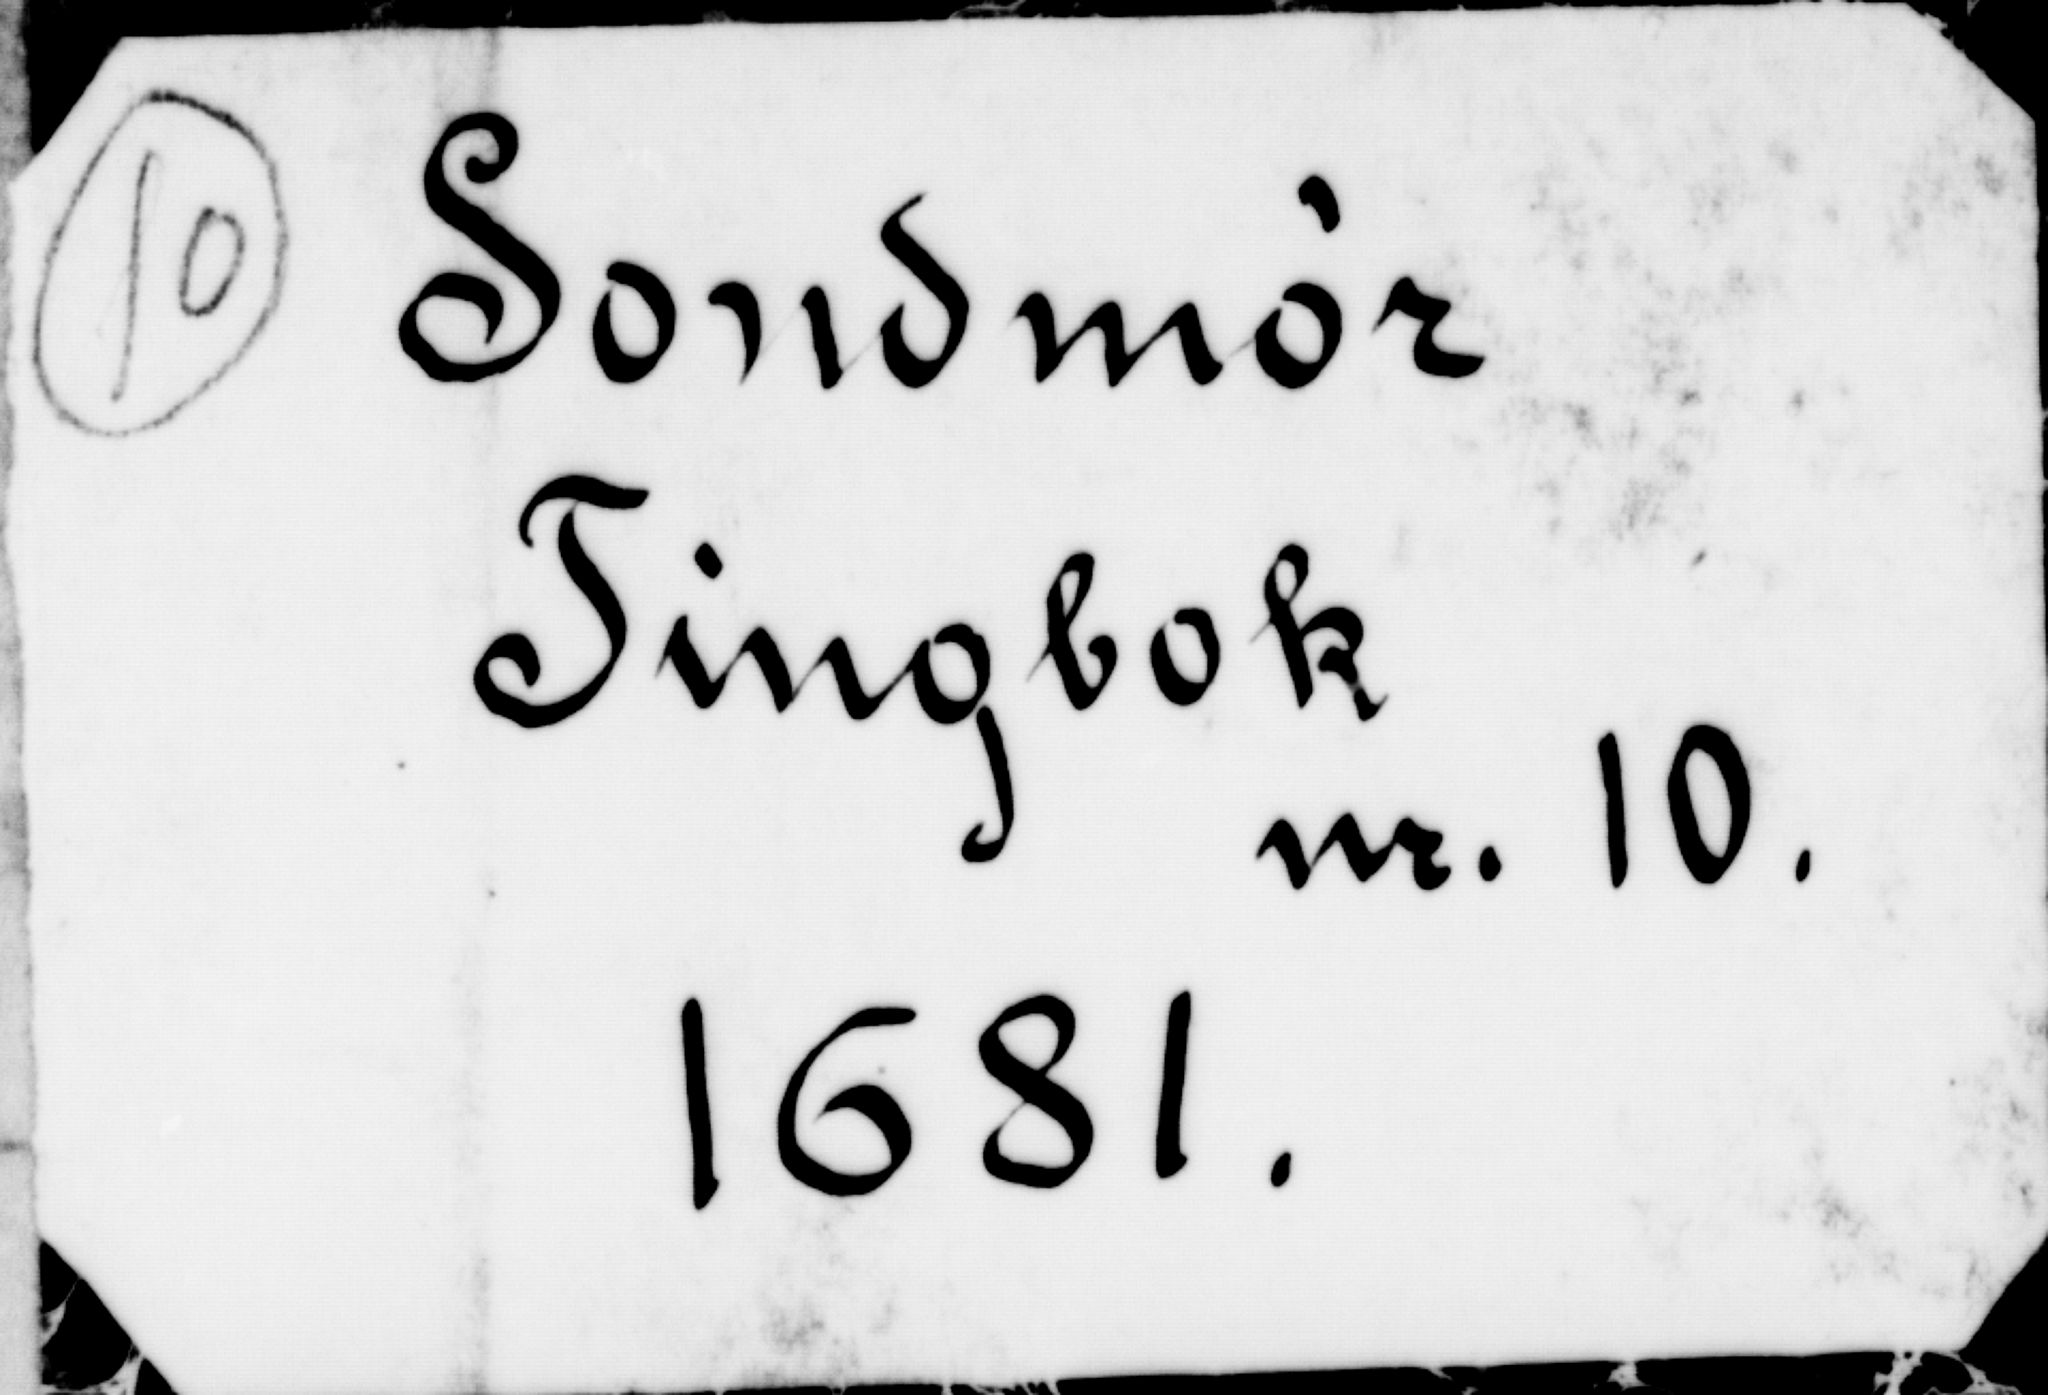 10
Sondmór
Tingbok
nr. 10.
1681.